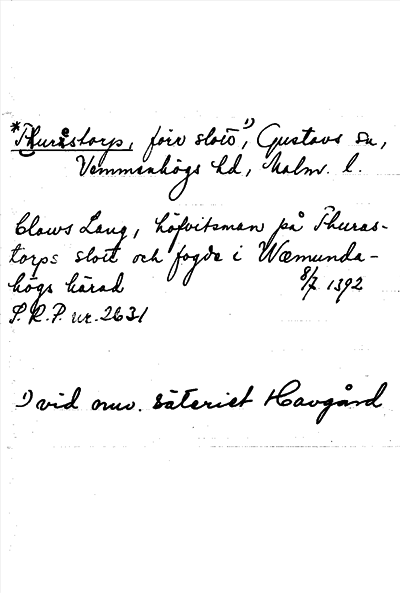 *Thuråstorp, förv slott¹⁾, Gustavs sn,
Vemmenhögs hd, Malm. l.
Claws Lang, höfvitsman på Thuras-
torps slott och fogde i Wæmunda-
högs härad 8/7 1392
S.R.P. nr. 2631
¹⁾ vid nuv. säteriet Havgård